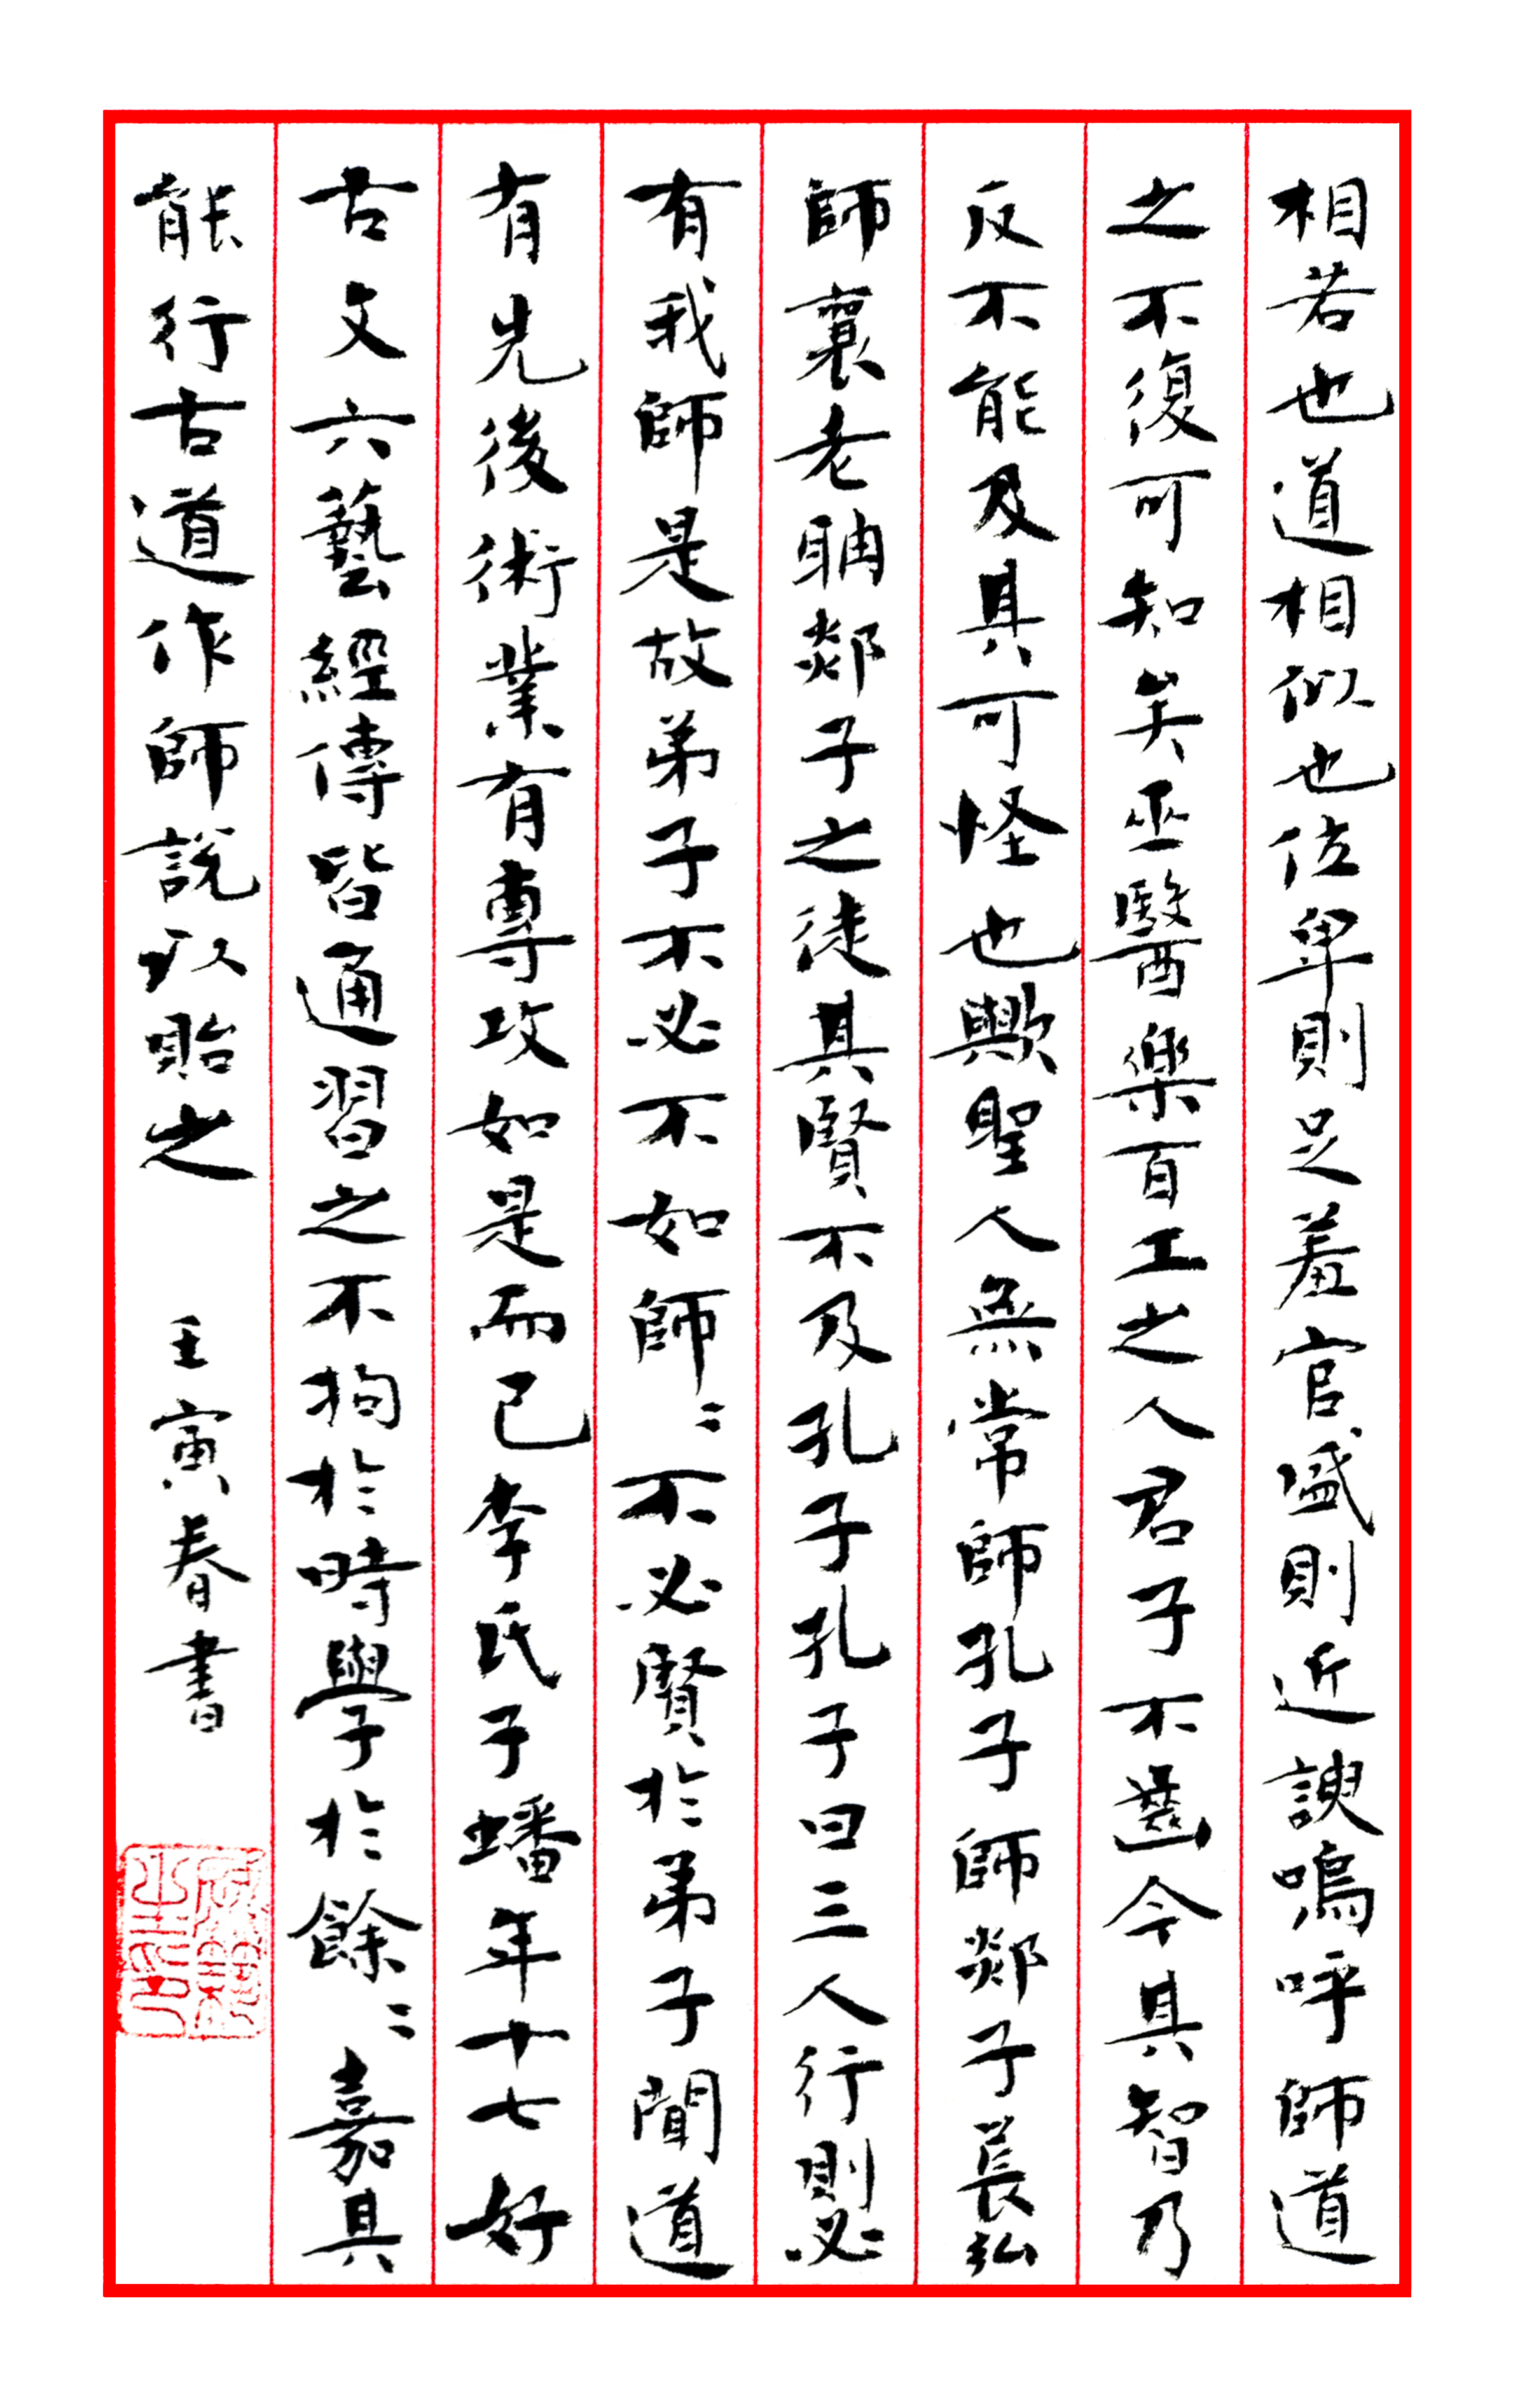 相若也道相似也位卑則足羞官盛則近諛嗚呼師道
之不復可知矣巫醫樂百工之人君子不齒今其智乃
反不能及其可怪也歟聖人無常師孔子師郯子萇弘
師襄老聃郯子之徒其賢不及孔子孔子曰三人行則必
有我師是故弟子不必不如師〻不必賢於弟子聞道
有先後術業有專攻如是而已李氏子蟠年十七好
古文六藝經傳皆通習之不拘於時學於余〻嘉其
能行古道作師說以貽之 壬寅春書